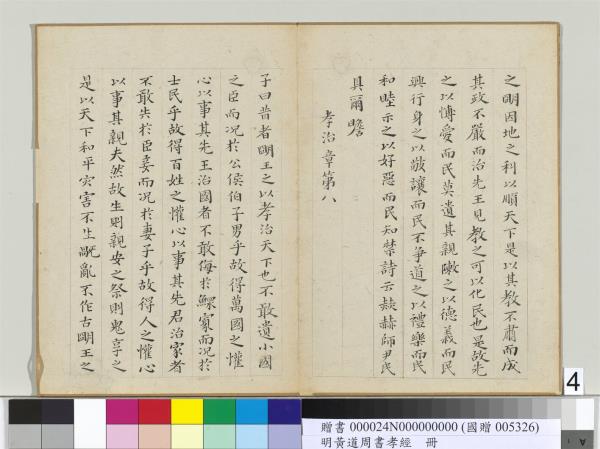 之朙因地之利以順天下是以其教不肅而成
其政不嚴而治先王見教之可以化民也是故先
之以博愛而民莫遺其親陳之以德義而民
興行身之以敬讓而民不爭道之以禮樂而民
和睦示之以好惡而民知禁詩云赫赫師尹民
具爾瞻
孝治章第八
子曰昔者朙王之以孝治天下也不敢遺小國
之臣而况於公侯伯子男乎故得萬國之懽
心以事其先王治國者不敢侮於鰥寡而况於
士民乎故得百姓之懽心以事其先君治家者
不敢失於臣妾而况於妻子乎故得人之懽心
以事其親夫然故生則親安之祭則鬼享之
是以天下和平灾害不生禍亂不作古朙王之
4
贈書 000024N000000000 (國贈 005326)
明黃道周書孝經 冊